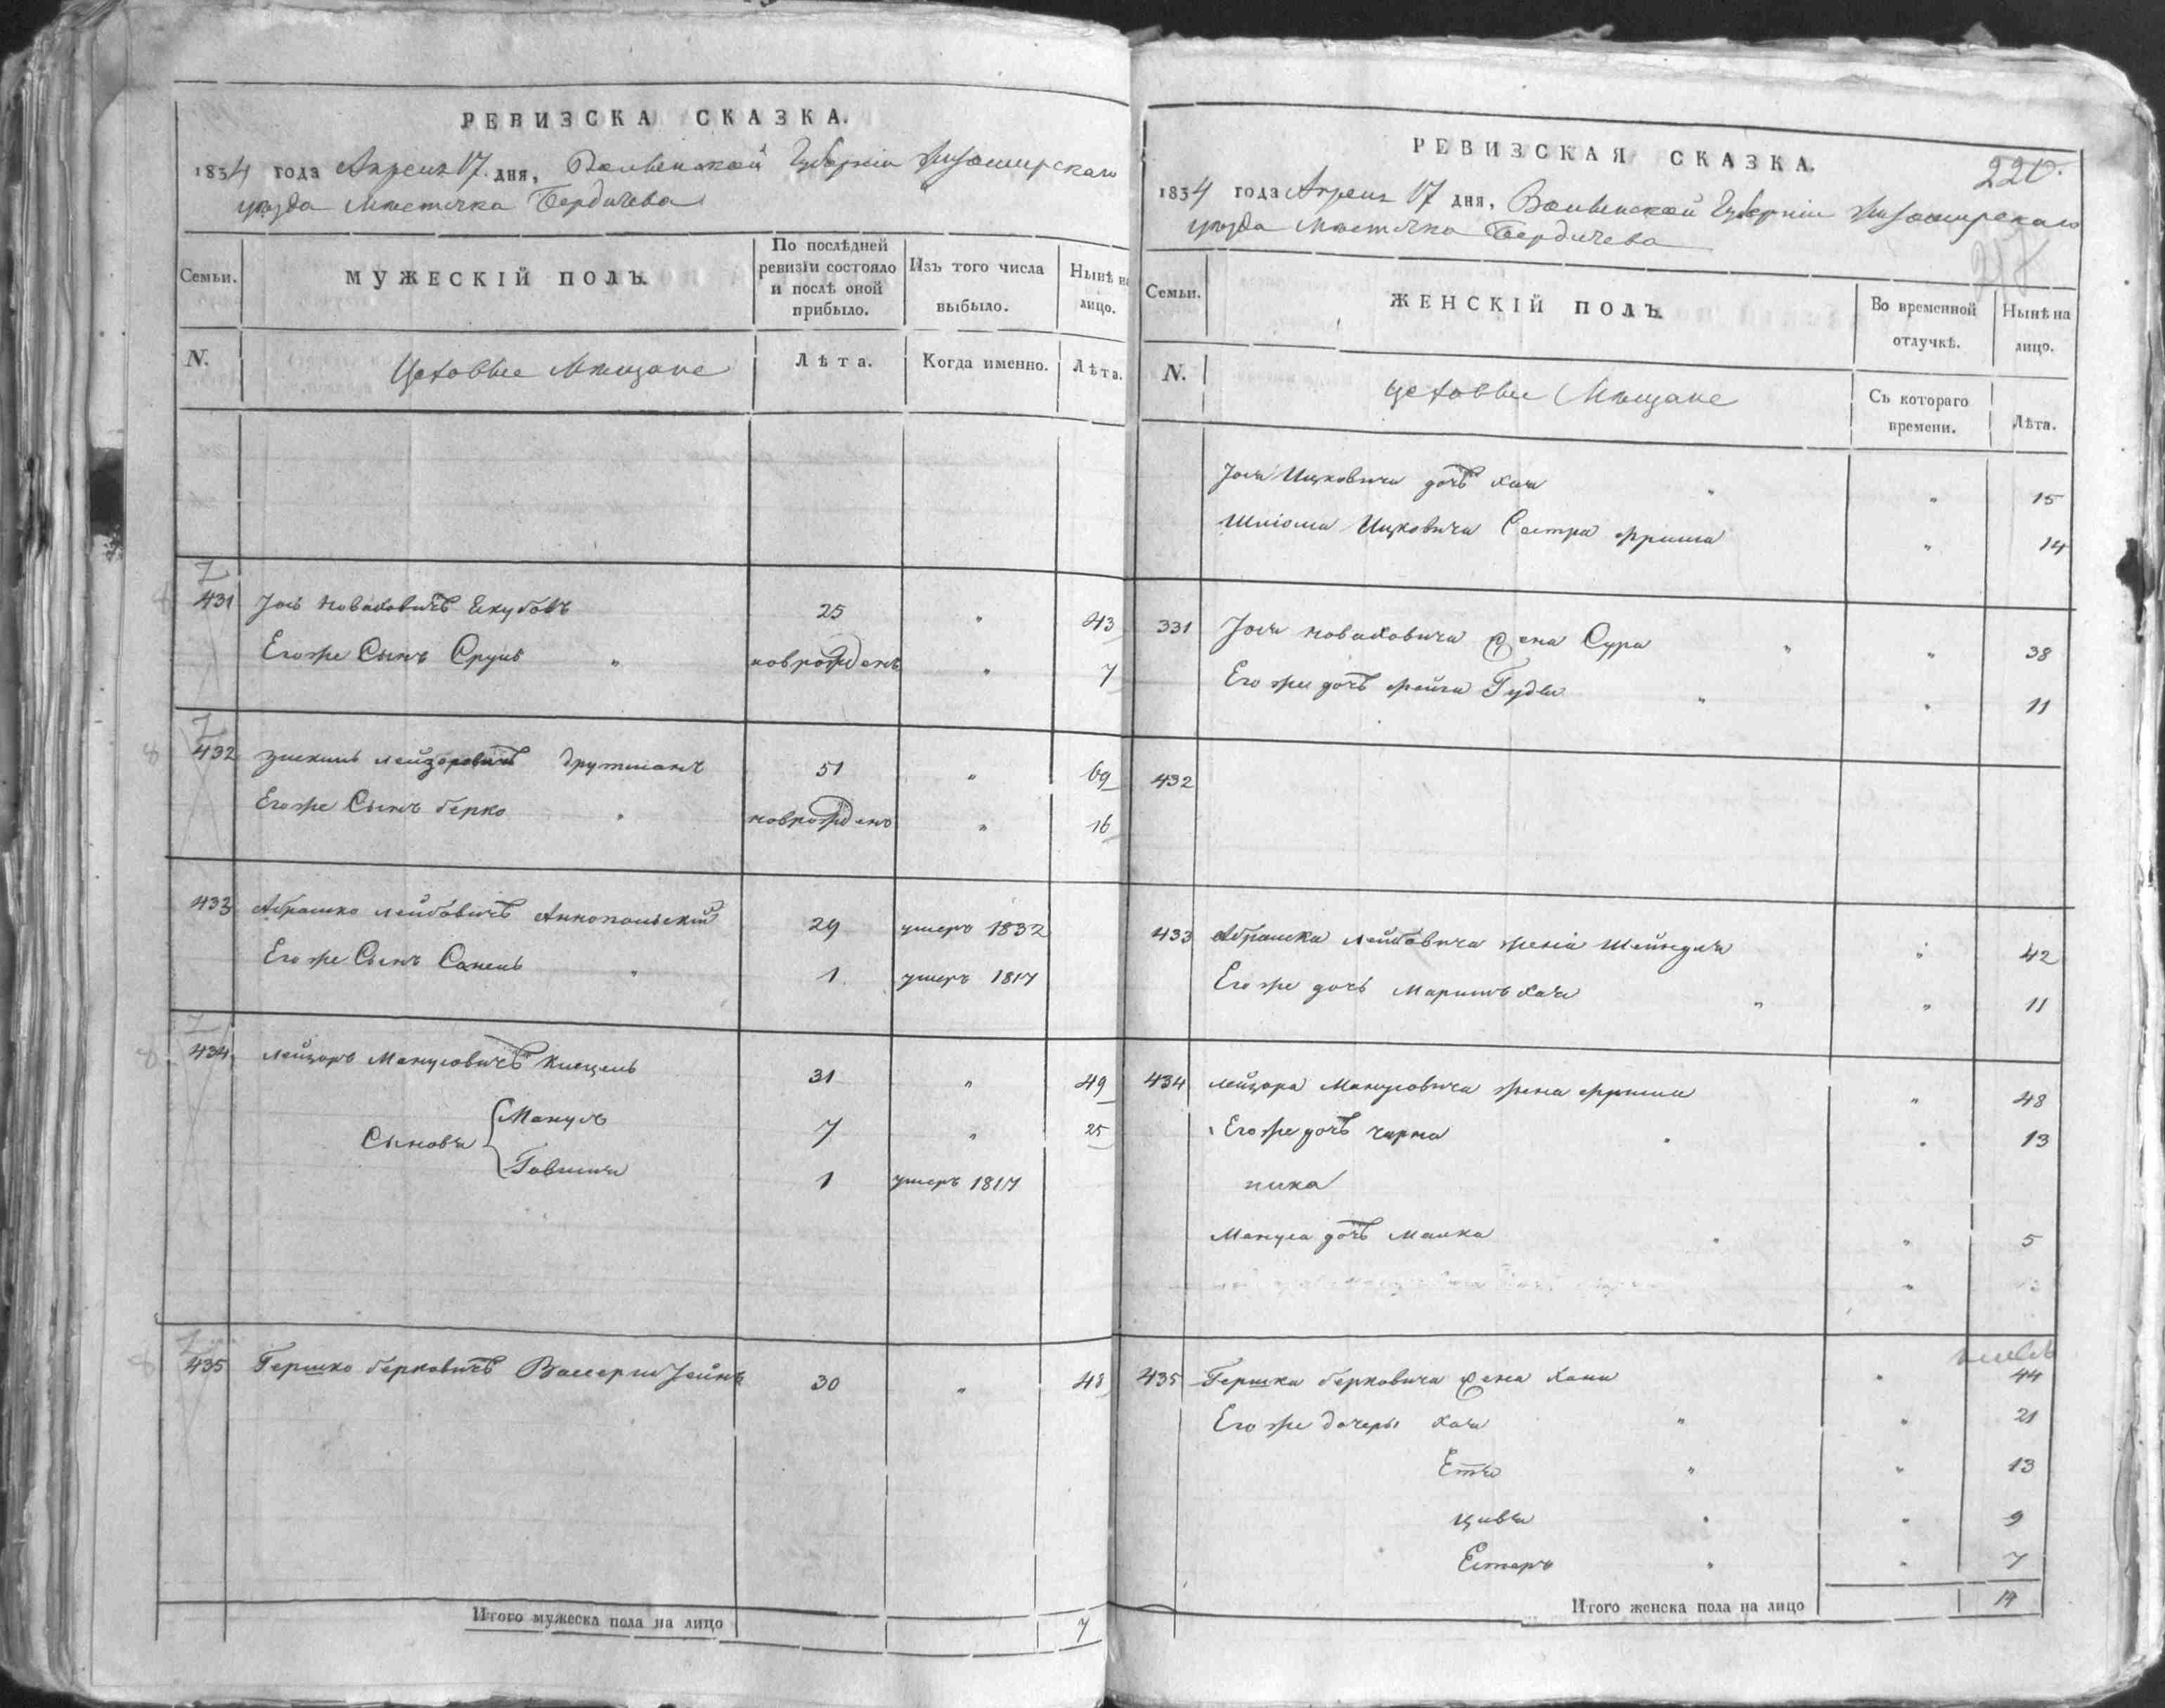 РЕВИЗСКА СКАЗКА.
1834 года Апреля 17 дня, Волынской Губерніи Житомирскаго
уѣзда Мѣстечка Бердичева
Семьи.
МУЖЕСКІЙ ПОЛЪ.
По послѣдней ревизіи состояло и послѣ оной прибыло.
Изъ того числа выбыло.
Нынѣ на лицо.
N.
Цеховые Мѣщане
Лѣта.
Когда именно.
Лѣта.
431 Јось Новаховичъ Екубовъ 25 " 43
Егоже Сынъ Сруль " новрожденъ " 7
432 Зискинь Лейзоровичъ Друтманъ 51 " 69
Егоже Сынъ Берко " новрожденъ " 16
433 Абрамко Лейбовичъ Аннопольскій 29 умеръ 1832
Егоже Сынъ Санель " 1 умеръ 1817
434 Лейзоръ Мануловичъ 31 " 49
Сыновья Манусъ 7 " 25
1 умеръ 1817
435 Гершко Берковичъ Вассерштейнъ 30 " 48
Итого мужеска пола на лицо 7
РЕВИЗСКАЯ СКАЗКА.
220.
1834 года Апреля 17 дня, Волынской Губерніи Житомирскаго
уѣзда Мѣстечка Бердичева
Семьи.
ЖЕНСКІЙ ПОЛЪ.
Во временной отлучкѣ.
Нынѣ на лицо.
N.
Цеховые Мѣщане
Съ котораго времени.
Лѣта.
Јося Ицковича дочь Хая " " 15
Шліома Ицковича Сестра Фрима " 14
331 Јося Новаховича жена Сура " " 38
Егоже дочь Фейга Гудля " " 11
432
433 Абрамка Лейбовича жена Шейндля " 42
Егоже дочь Маримъ Хая " " 11
434 Лейзора Манусовича жена Фрима " 48
Егоже дочь Чарна " " 13
Мануса дочь Малка " " 5
"
435 Гершка Берковича жена Хана " 44
Егоже дочеры Хая " " 21
Етя " " 13
Цивья " " 9
Естеръ " " 7
Итого женска пола на лицо 14